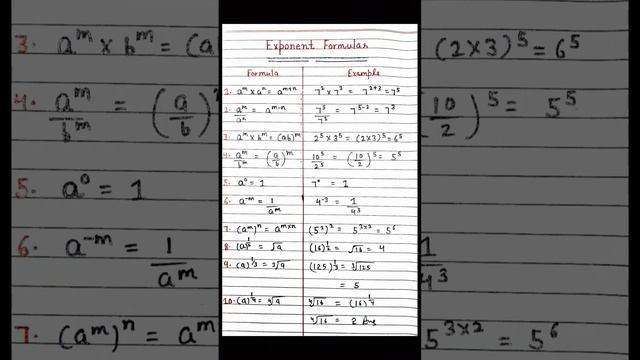 Exponent Formulas
Formula Example
1. aᵐ × aⁿ = aᵐ⁺ⁿ 7² × 7³ = 7²⁺³ = 7⁵
2. aᵐ/aⁿ = aᵐ⁻ⁿ 7⁵/7² = 7⁵⁻² = 7³
3. aᵐ × bᵐ = (ab)ᵐ 2⁵ × 3⁵ = (2×3)⁵ = 6⁵
4. aᵐ/bᵐ = (a/b)ᵐ 10⁵/2⁵ = (10/2)⁵ = 5⁵
5. a⁰ = 1 7⁰ = 1
6. a⁻ᵐ = 1/aᵐ 4⁻³ = 1/4³
7. (aᵐ)ⁿ = aᵐˣⁿ (5³)² = 5³ˣ² = 5⁶
8. (a)^½ = √a (16)^½ = √16 = 4
9. (a)^⅓ = ∛a (125)^⅓ = ∛125
= 5
10. (a)^¼ = ∜a ∜16 = (16)^¼
∜16 = 2 Ans
3. aᵐ × bᵐ = (a
4. aᵐ/bᵐ = (a/b)
5. a⁰ = 1
6. a⁻ᵐ = 1/aᵐ
7. (aᵐ)ⁿ =
(2×3)⁵ = 6⁵
(10/2)⁵ = 5⁵
1/4³
5³ˣ² = 5⁶